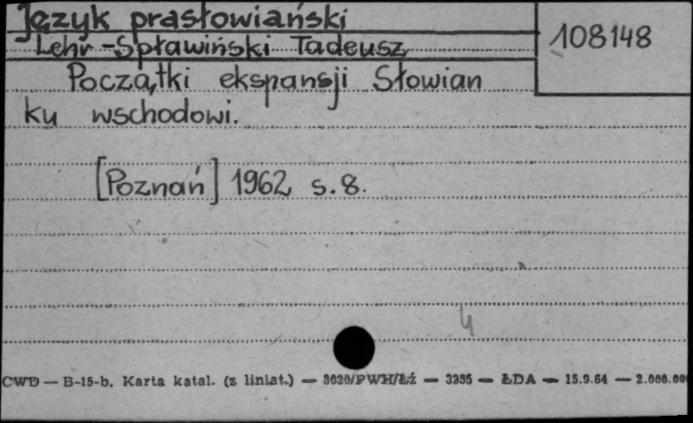 Język prasłowiański
108148
Lehr-Spławiński Tadeusz
Początki ekspansji Słowian
ku wschodowi.
[Poznań] 1962 s. 8.
4
CWD — B-15-b. Karta katal. (z liniat.) — 3020/PWH/Łź — 3235 — ŁDA — 15.9.64 —